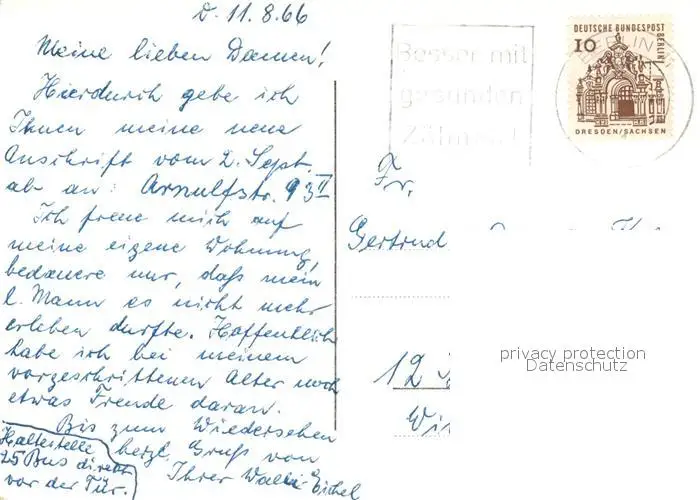 D. 11.8.66
Meine lieben Damen!
Hierdurch gebe ich
Ihnen meine neue
Anschrift vom 2. Sept.
ab an: Arnulfstr. 93 II
Ich freue mich auf
meine eigene Wohnung,
bedauere nur, daß mein
l. Mann es nicht mehr
erleben durfte. Hoffentlich
habe ich bei meinem
vorgeschrittenen Alter noch
etwas Freude daran.
Bis zum Wiedersehen
herzl. Gruß von
Ihrer Walli Eichel
Haltestelle
25 Bus direkt
vor der Tür.
Besser mit
gesunden
Zähnen!
BERLIN
DEUTSCHE BUNDESPOST
BERLIN
10
DRESDEN/SACHSEN
Fr.
Gertrud
12
privacy protection
Datenschutz